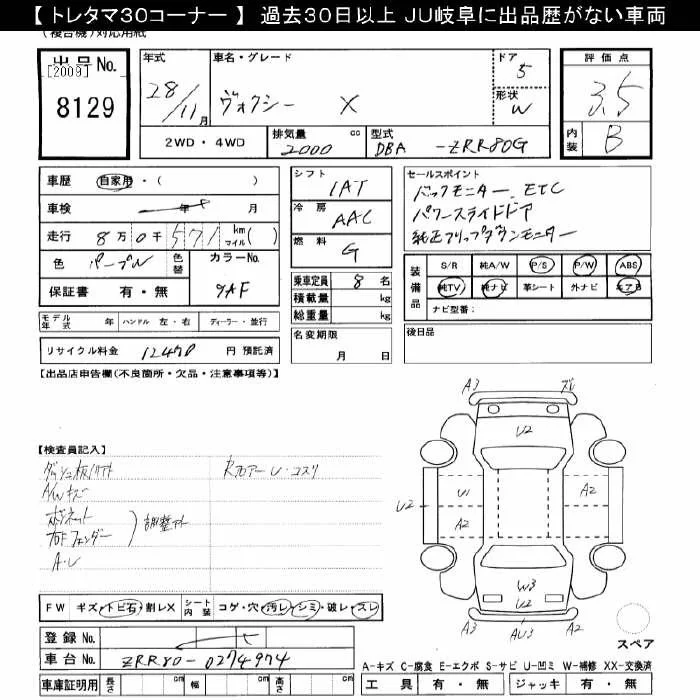 【 トレタマ30コーナー 】 過去30日以上 JU岐阜に出品歴がない車両
(複合機)対応用紙
出品 No.
[2009]
8129
年式
28/11月
車名・グレード
ヴォクシー X
ドア
5
形状
W
2WD・4WD
排気量 2000 cc
型式 DBA -ZRR80G
評価点
3.5
内装 B
車歴 自家用・( )
車検 年 8 月
走行 8万0千571 km マイル( )
色 パープル 色替
カラーNo. 9AF
保証書 有・無
モデル年式 年 ハンドル 左・右 ディーラー・並行
リサイクル料金 円 預託済
シフト 1AT
冷房 AAC
燃料 G
乗車定員 8 名
積載量 kg
総重量 kg
名変期限
月 日
セールスポイント
バックモニター、ETC
パワースライドドア
純正フリップダウンモニター
装備品
S/R 純A/W P/S P/W ABS
純TV 純ナビ 革シート 外ナビ エアB
ナビ型番:
後日品
【出品店申告欄(不良箇所・欠品・注意事項等)】
【検査員記入】
A/Wキズ
ボンネット
右Fフェンダー
A・U
A3
U2
U1
A2
U2
A2
A2
W3
U2
A3
AU3
A3
スペア
FW キズ・トビ石・割レX シート内装 コゲ・穴・汚レ・シミ・破レ・スレ
登録 No.
車台 No. ZRR80-0274974
車庫証明用 長さ cm 幅 cm 高さ cm
A-キズ C-腐食 E-エクボ S-サビ U-凹ミ W-補修 XX-交換済
工具 有・無 ジャッキ 有・無